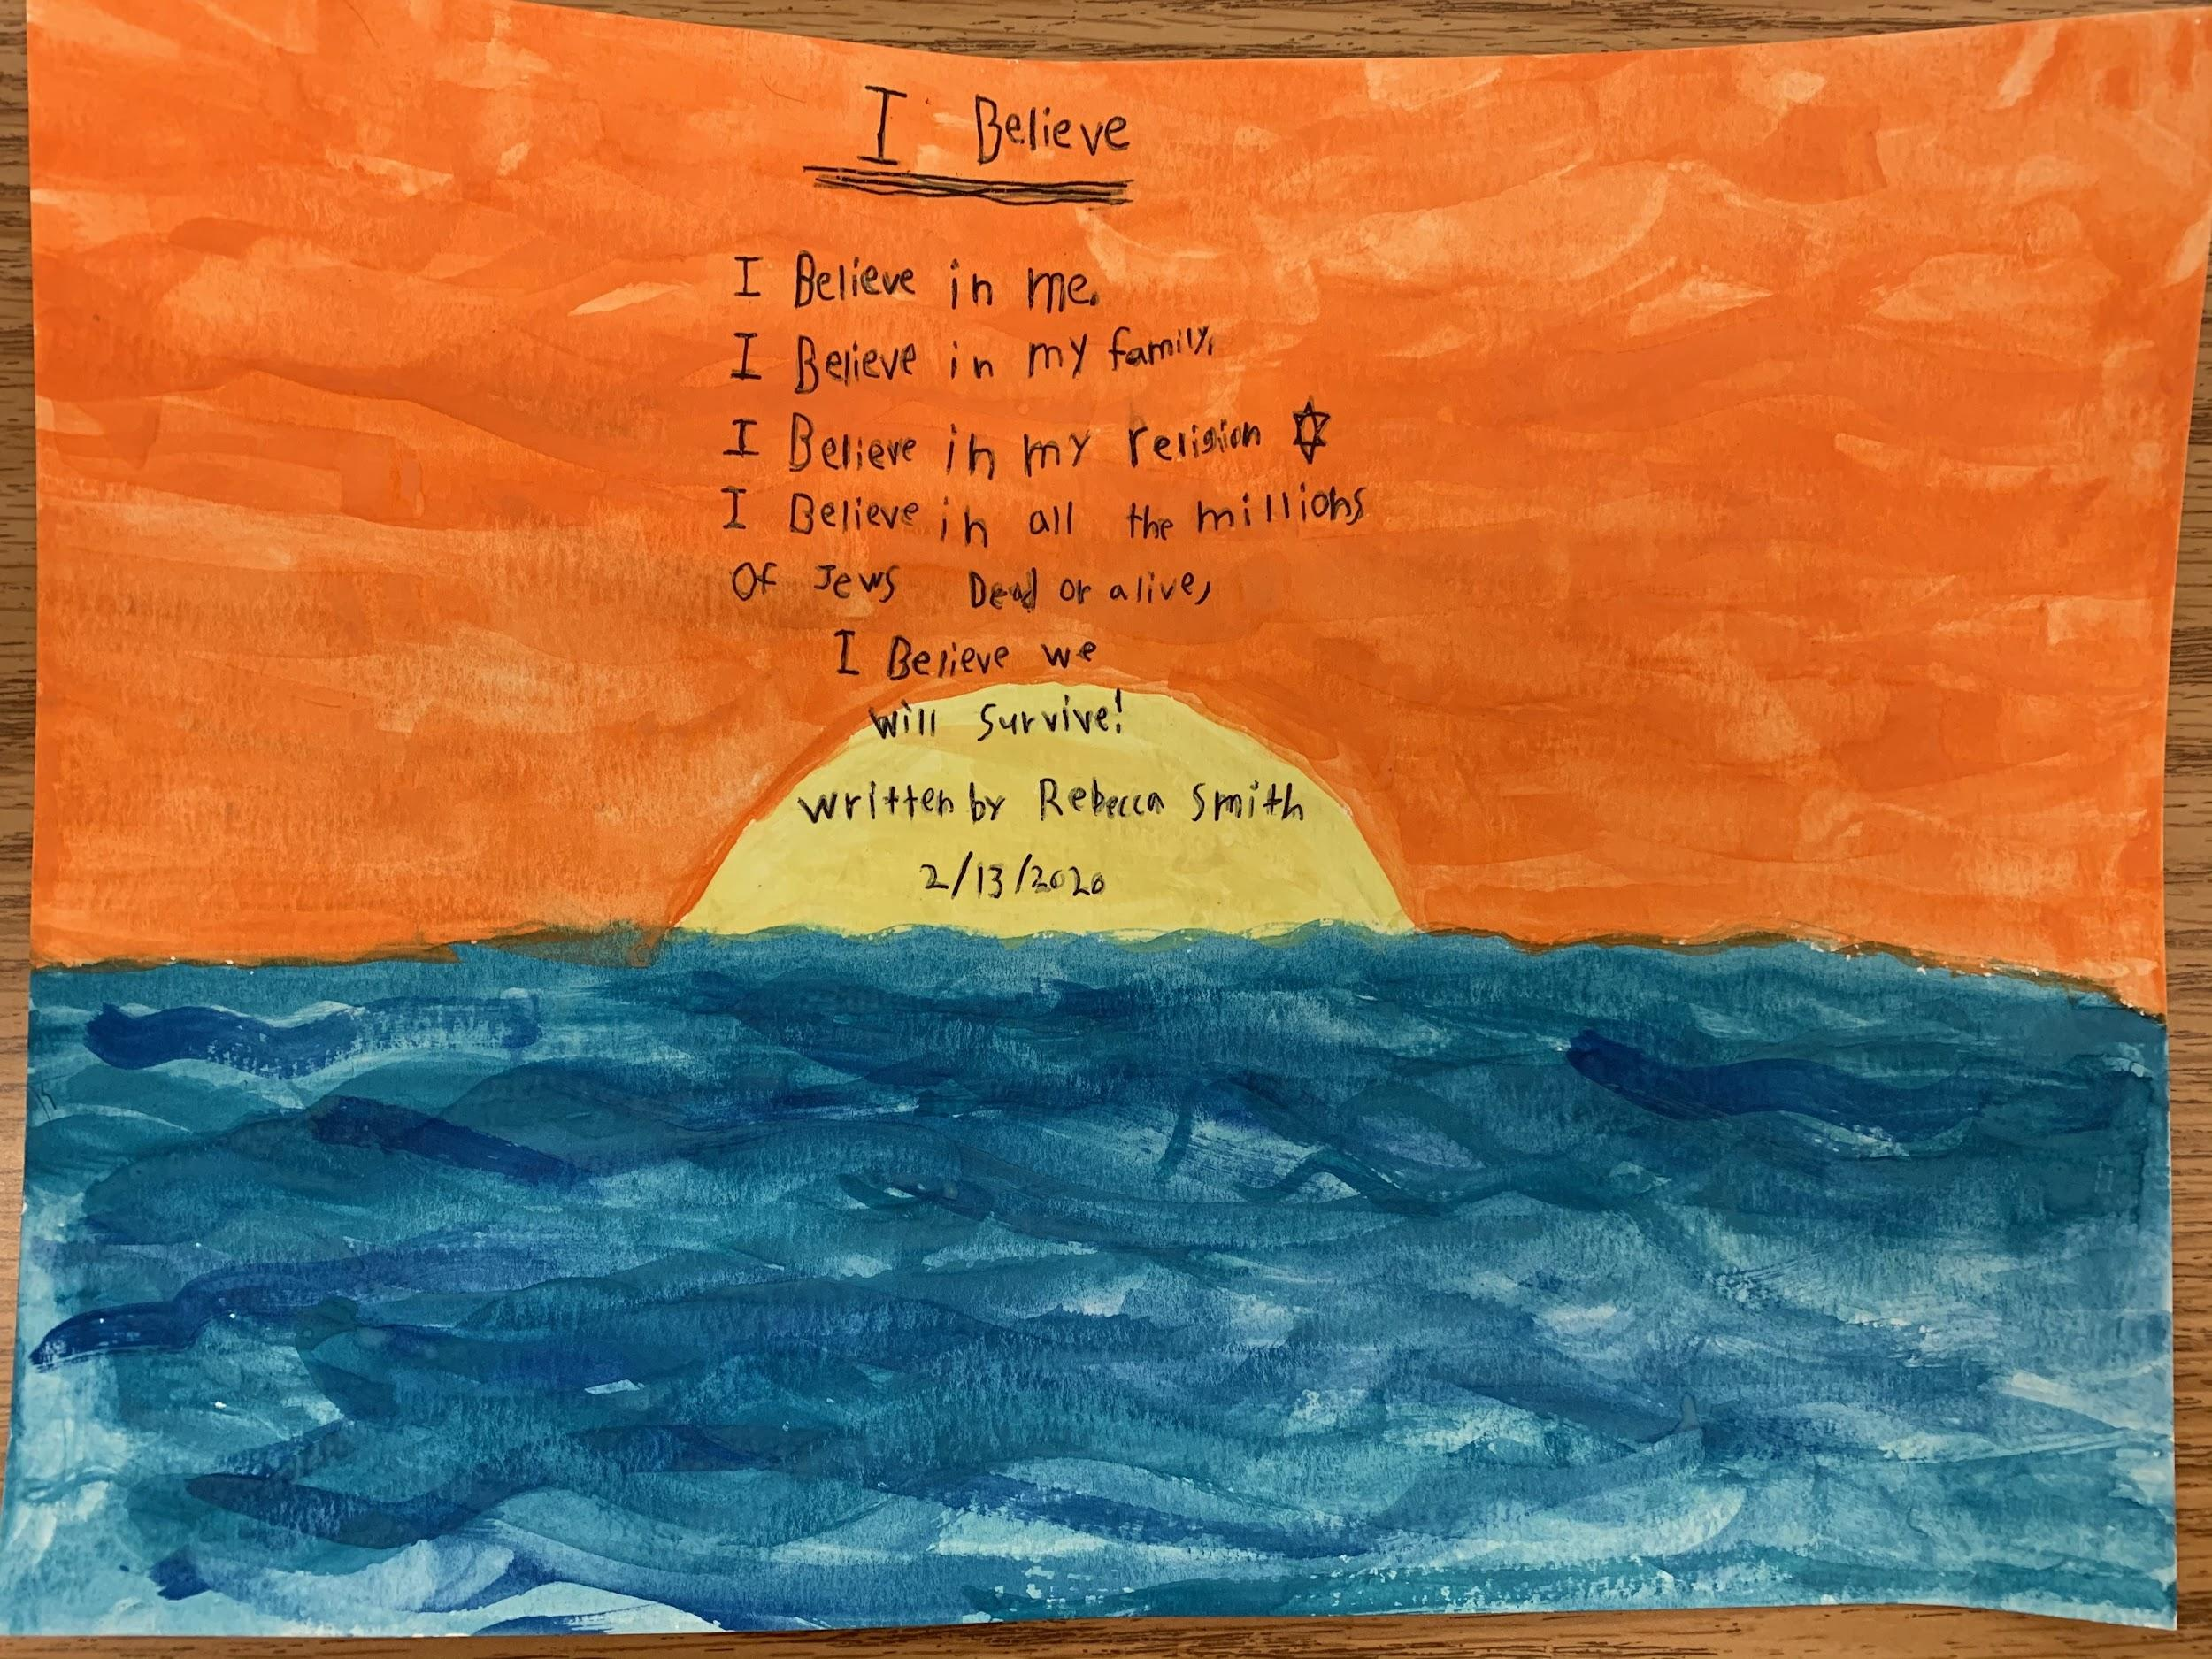 I Believe
I Believe in me.
I Believe in my family,
I Believe in my religion ✡
I Believe in all the millions
Of Jews Dead or alive,
I Believe we
will survive!
written by Rebecca Smith
2/13/2020